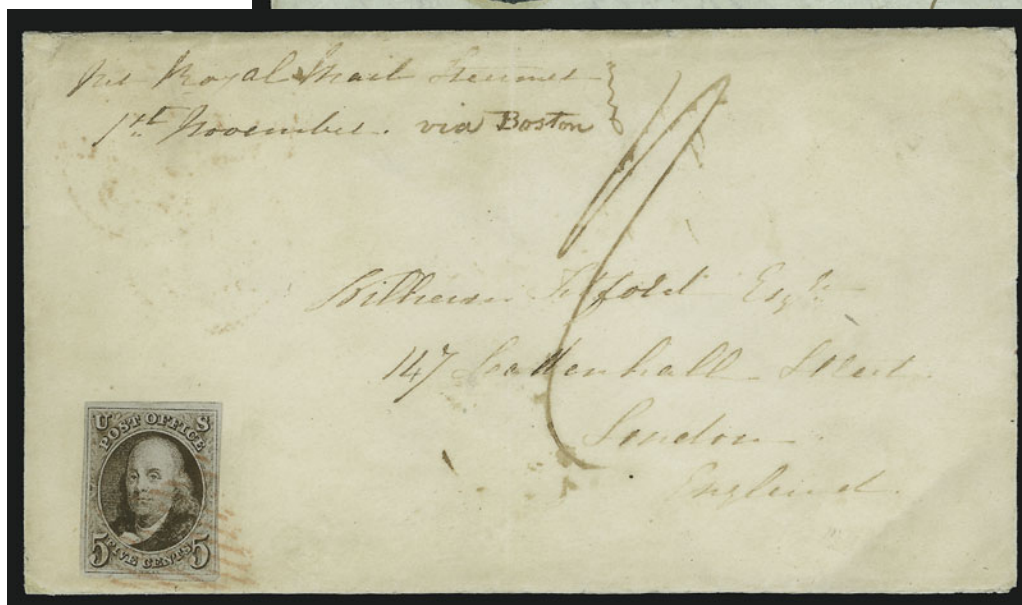 Per Royal Mail Steamer
1st November. via Boston
William Esqr.
147 Leadenhall Street
London
England.
U S
POST OFFICE
5 FIVE CENTS 5